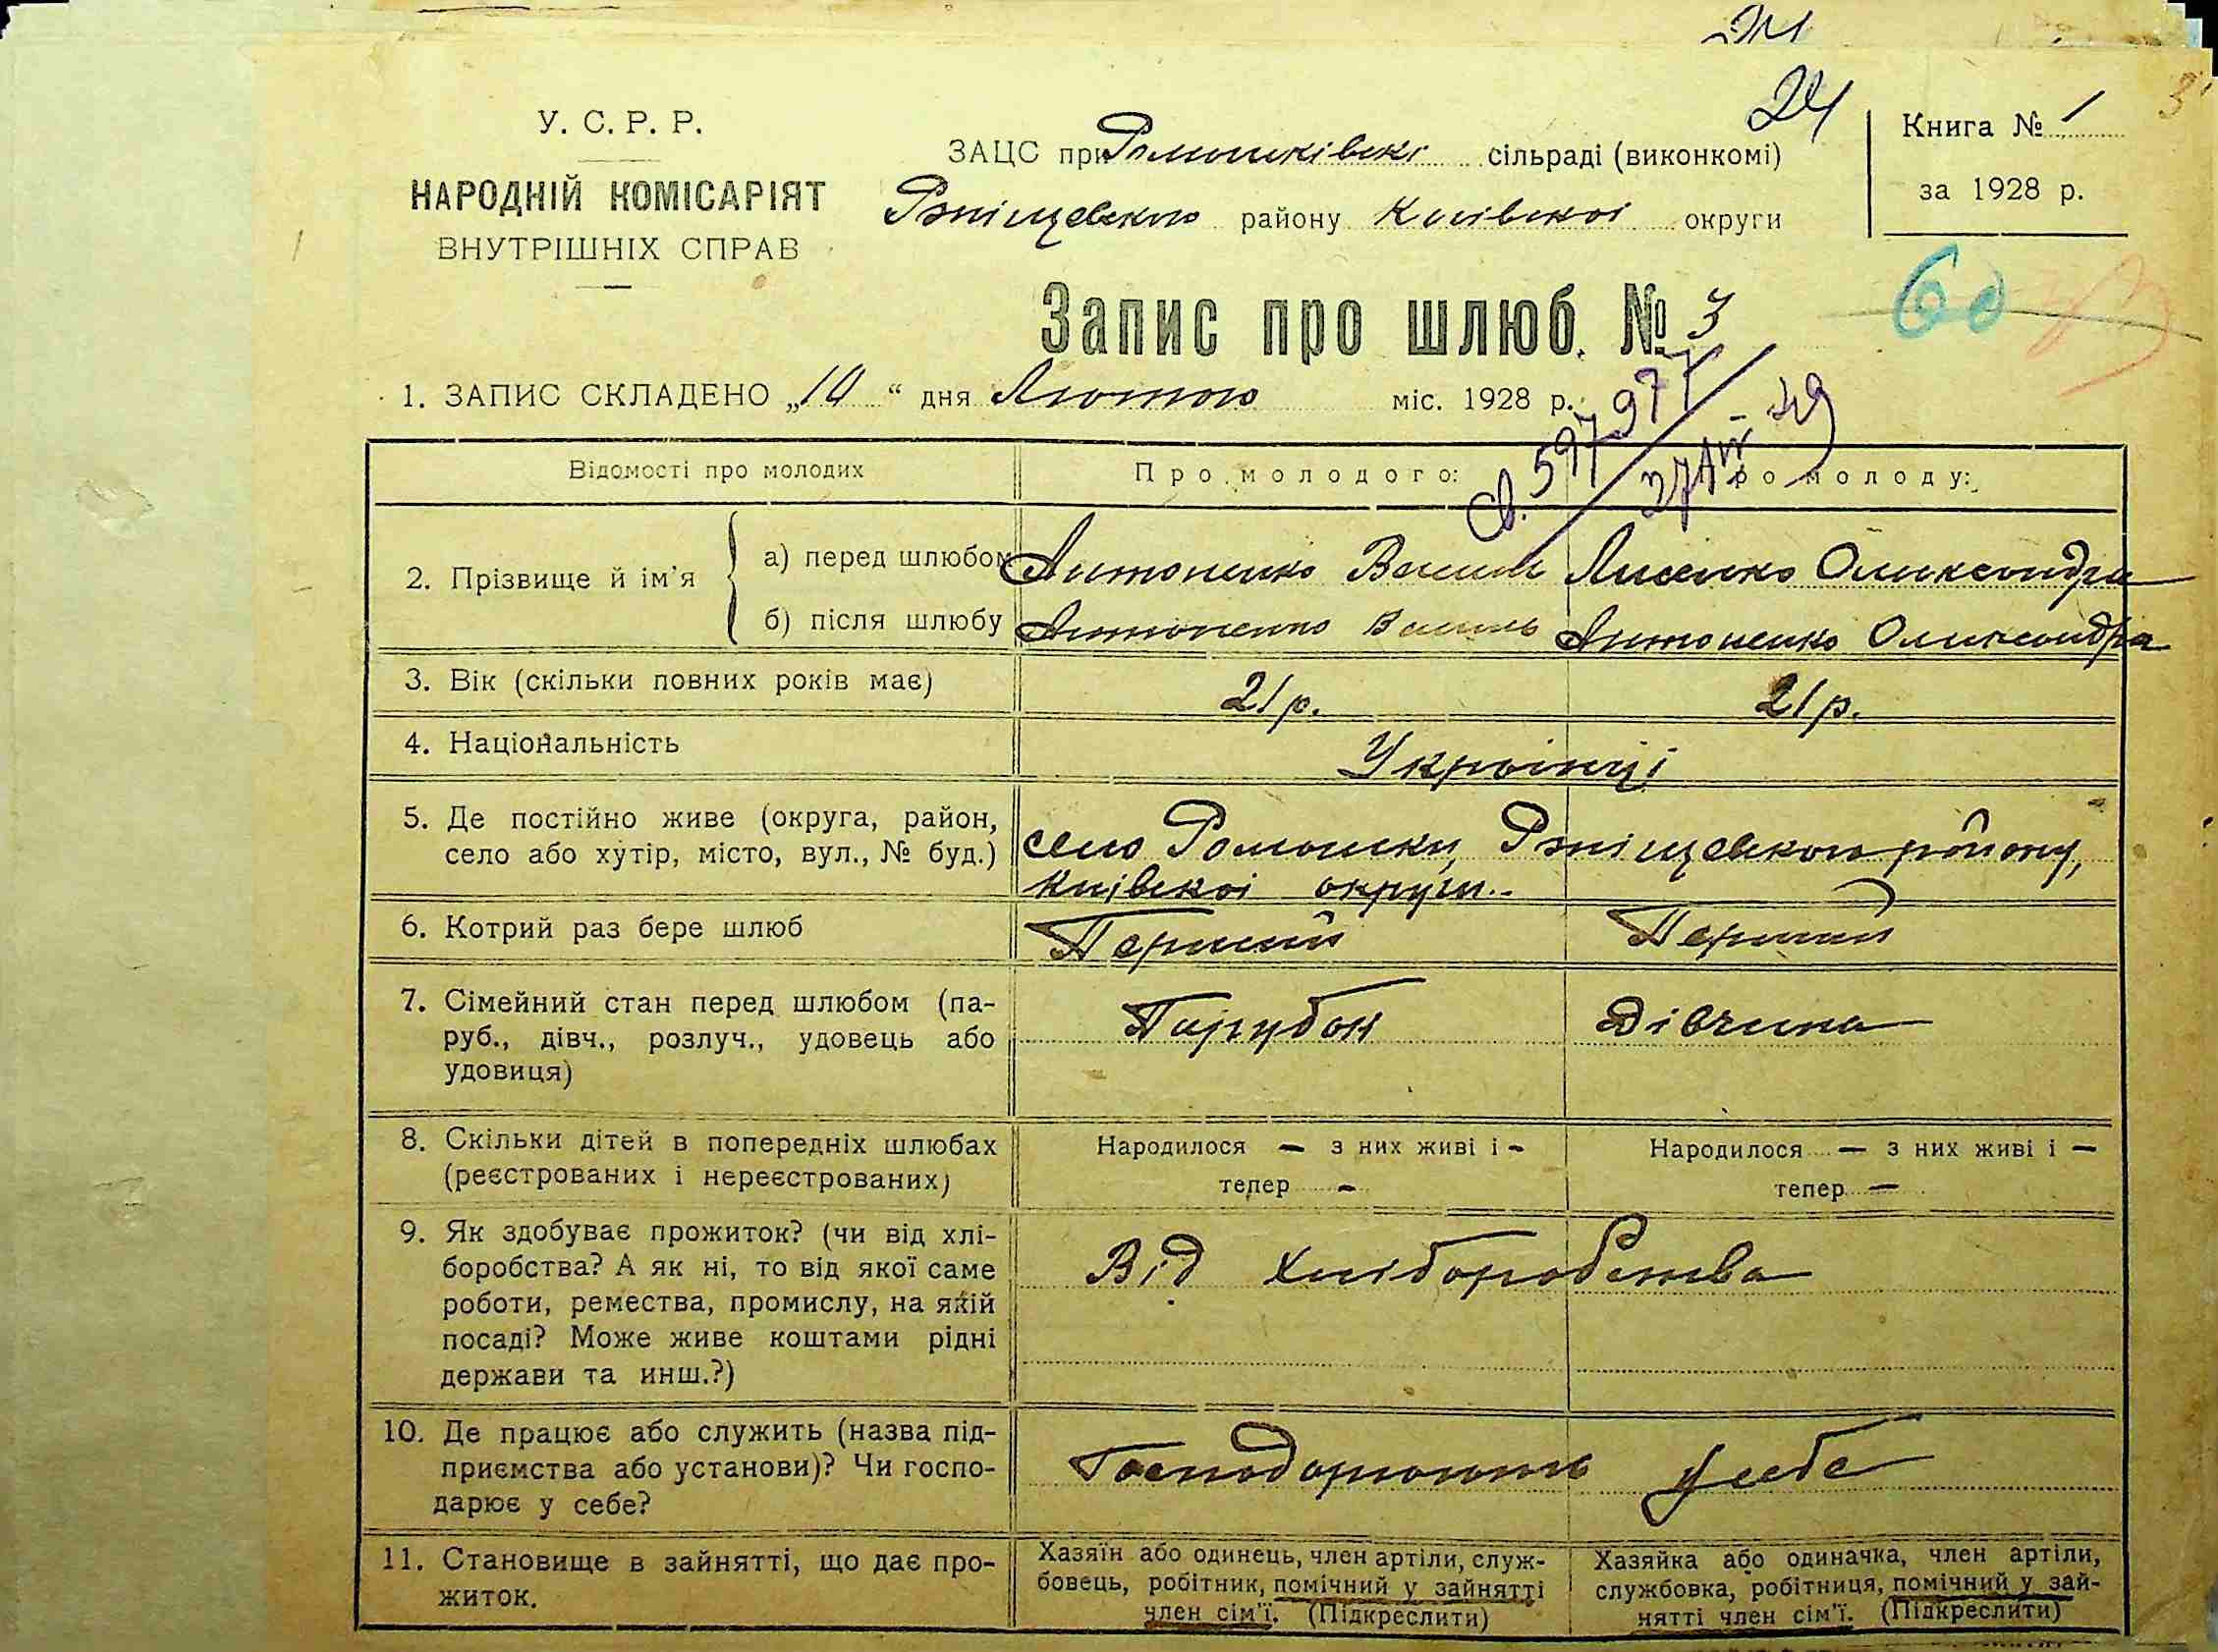 24
У. С. Р. Р.
НАРОДНІЙ КОМІСАРІЯТ
ВНУТРІШНІХ СПРАВ
ЗАЦС при Ромашківські сільраді (виконкомі)
Ржіщевського району Київської округи
Книга № 1
за 1928 р.
60
Запис про шлюб. № 3
1. ЗАПИС СКЛАДЕНО „10" дня Лютого міс. 1928 р.
св. 597977
27/VI-49
Відомості про молодих
Про молодого:
Про молоду:
2. Прізвище й ім'я
а) перед шлюбом Антоненко Василь Лисенко Олександра
б) після шлюбу Антоненко Василь Антоненко Олександра
3. Вік (скільки повних років має) 21 р. 21 р.
4. Національність Українці
5. Де постійно живе (округа, район,
село або хутір, місто, вул., № буд.)
село Ромашки, Ржіщевського району,
Київскої округи.
6. Котрий раз бере шлюб Перший Перший
7. Сімейний стан перед шлюбом (па-
руб., дівч., розлуч., удовець або
удовиця)
Парубок Дівчина
8. Скільки дітей в попередніх шлюбах
(реєстрованих і нереєстрованих)
Народилося — з них живі і —
тепер —
Народилося — з них живі і —
тепер —
9. Як здобуває прожиток? (чи від хлі-
боробства? А як ні, то від якої саме
роботи, ремества, промислу, на якій
посаді? Може живе коштами рідні
держави та инш.?)
Від Хліборобства
10. Де працює або служить (назва під-
приємства або установи)? Чи госпо-
дарює у себе?
Господарюють у себе
11. Становище в зайнятті, що дає про-
житок.
Хазяїн або одинець, член артіли, служ-
бовець, робітник, помічний у зайнятті
член сім'ї. (Підкреслити)
Хазяйка або одиначка, член артіли,
службовка, робітниця, помічний у зай-
нятті член сім'ї. (Підкреслити)